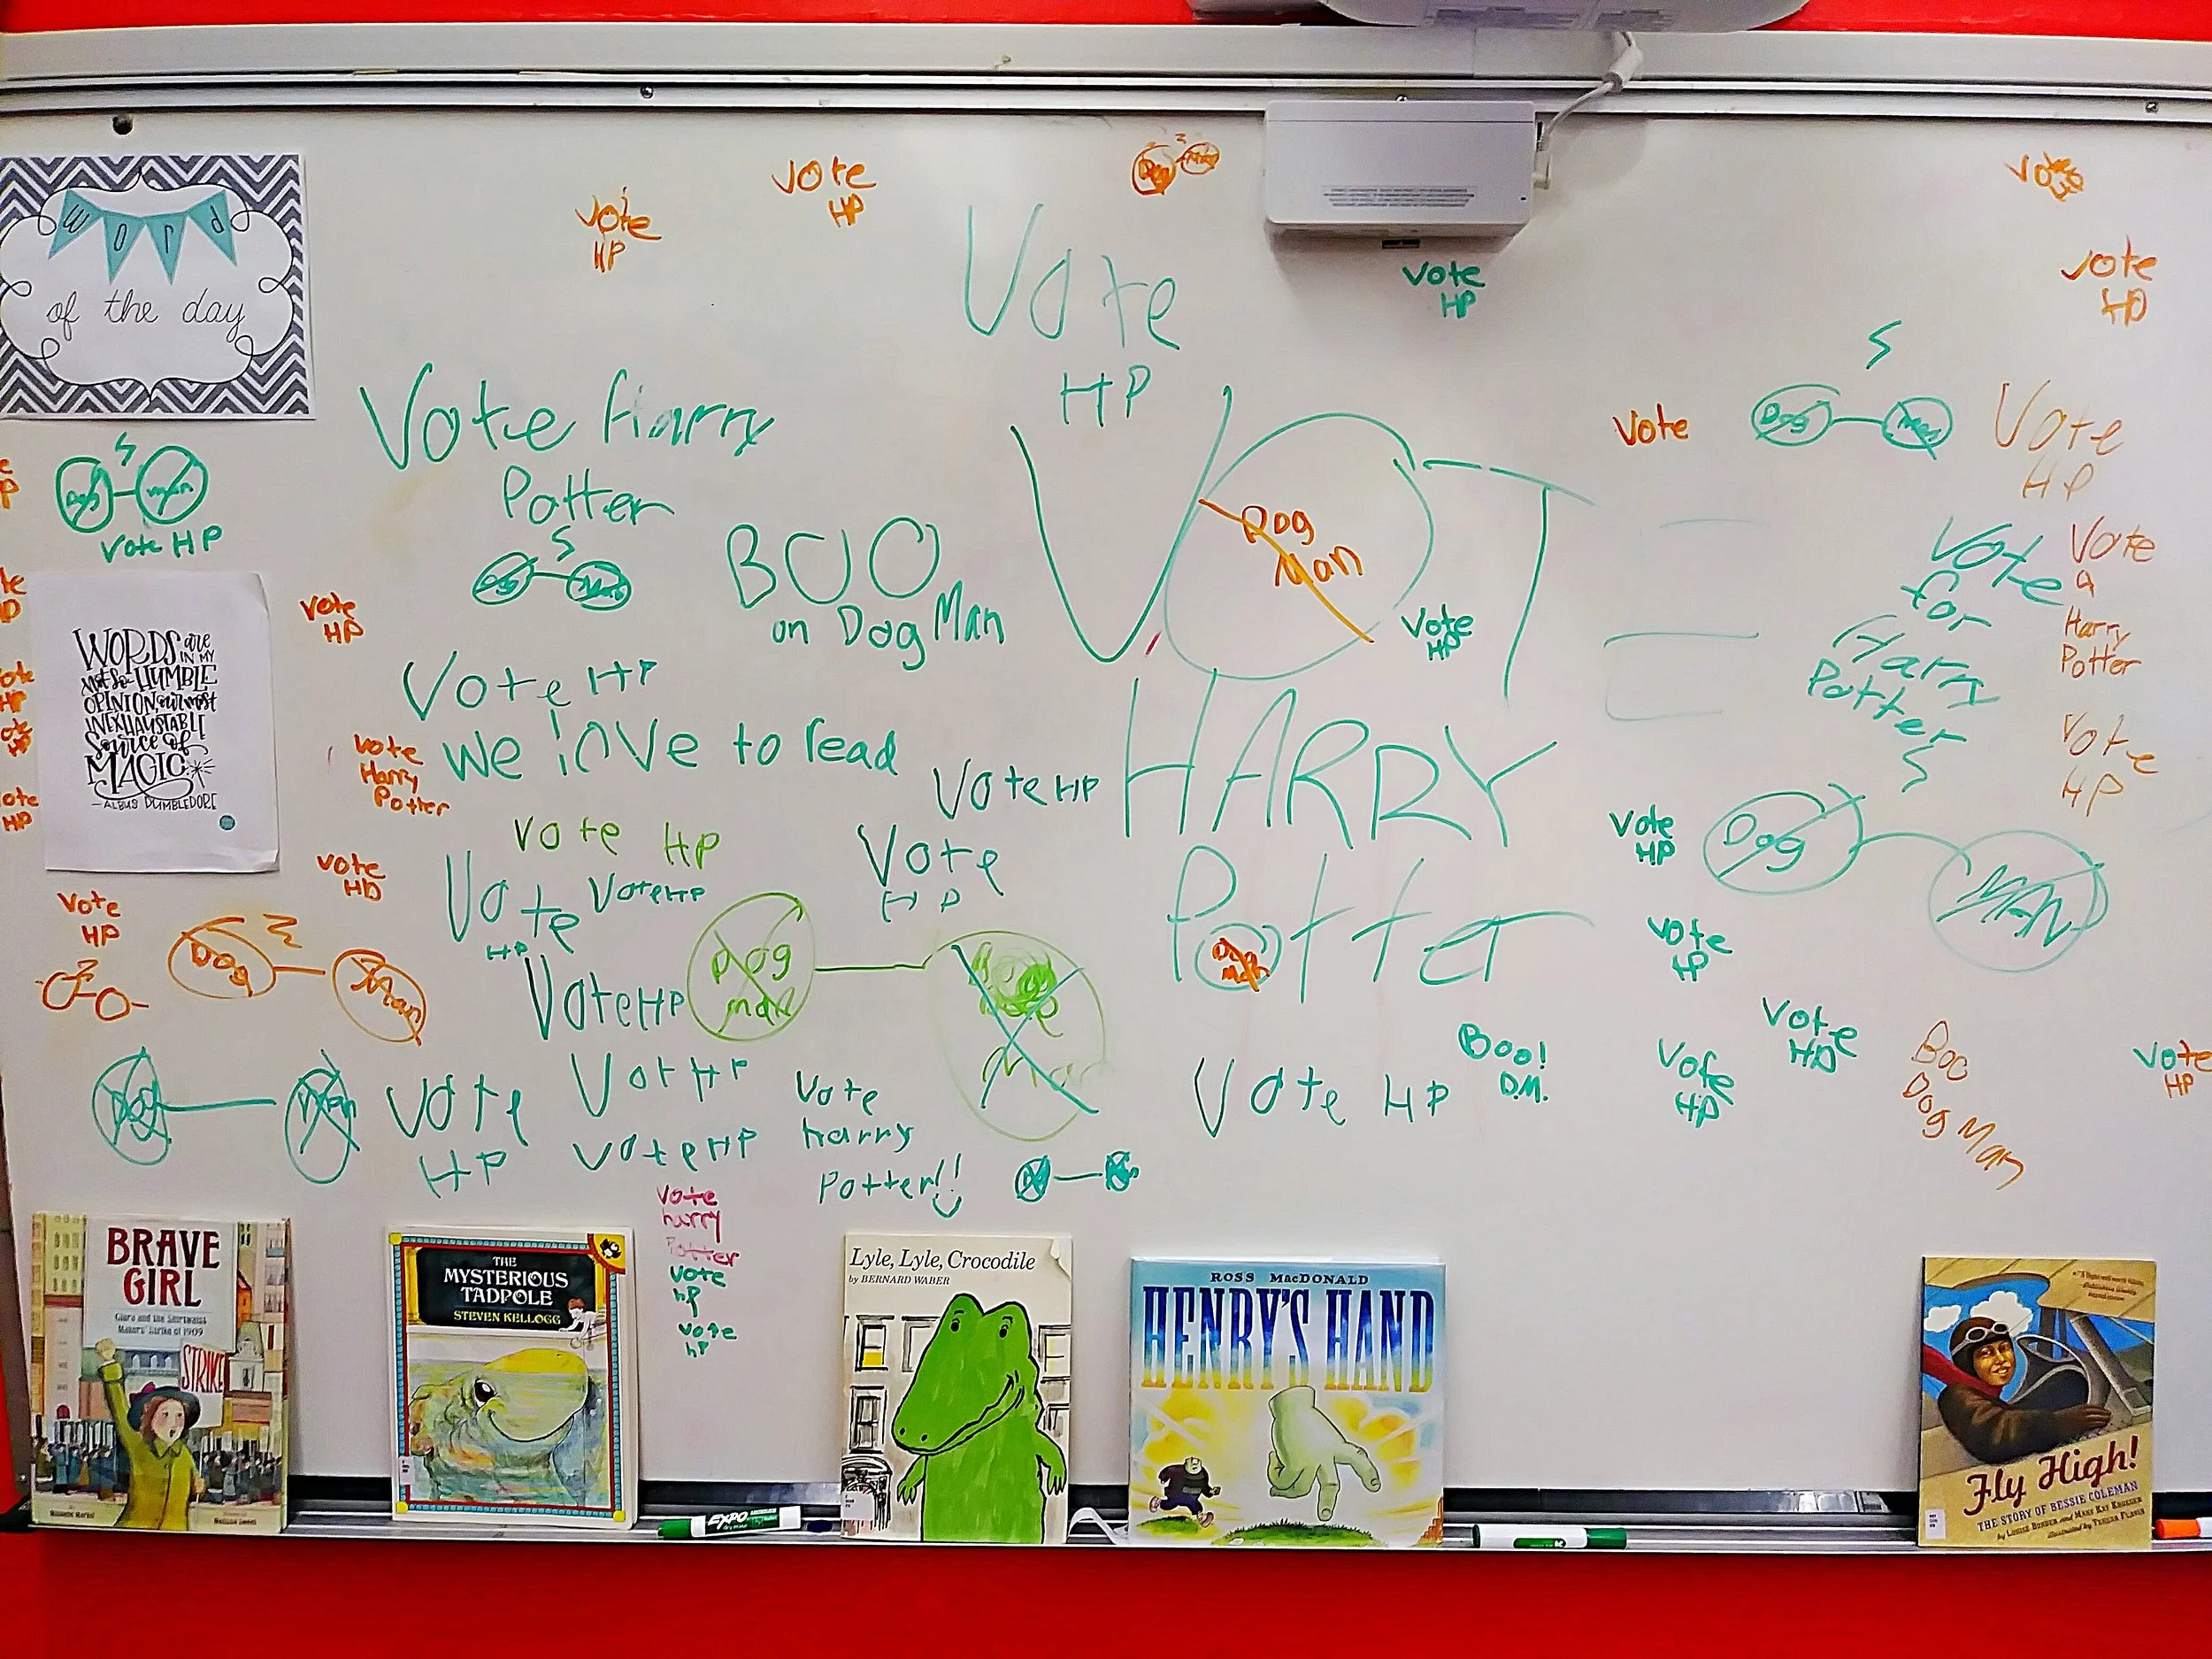 word
of the day
Vote
HP
Vote
HP
Dog Man
Vote
HP
Vote
HP
Vote
HP
Vote Harry
Potter
Dog Man
BOO
on Dog Man
VOTE
Dog
Man
Vote
HP
Vote
Dog Man
Vote
HP
Vote
for
Harry
Potter
Vote
a
Harry
Potter
Vote
HP
Dog Man
Vote HP
WORDS are
IN MY
not so HUMBLE
OPINION, our most
INEXHAUSTABLE
Source of
MAGIC
- ALBUS DUMBLEDORE
Vote
HP
Vote HP
we love to read
Vote
Harry
Potter
Vote HP
HARRY
Potter
Dog
Man
Vote HP
Vote
HP
Vote
HP
Vote
HP
Vote HP
Vote
HP
Dog Man
Vote HP
Dog
man
Man
Vote
HP
Dog MAN
Vote
HP
Vote
HP
Vote
HP
Boo
Dog Man
Vote
HP
Vote HP
Boo!
D.M.
Dog Man
Vote
HP
Vot HP
Vote HP
Vote
harry
Potter!!
Vote
harry
Potter
Vote
hP
Vote
hP
BRAVE
GIRL
Clara and the Shirtwaist
Makers' Strike of 1909
STRIKE
Michelle Markel
Melissa Sweet
THE
MYSTERIOUS
TADPOLE
STEVEN KELLOGG
Lyle, Lyle, Crocodile
by BERNARD WABER
ROSS MacDONALD
HENRY'S HAND
Fly High!
THE STORY OF BESSIE COLEMAN
by LOUISE BORDEN and MARY KAY KROEGER
illustrated by TERESA FLAVIN
EXPO